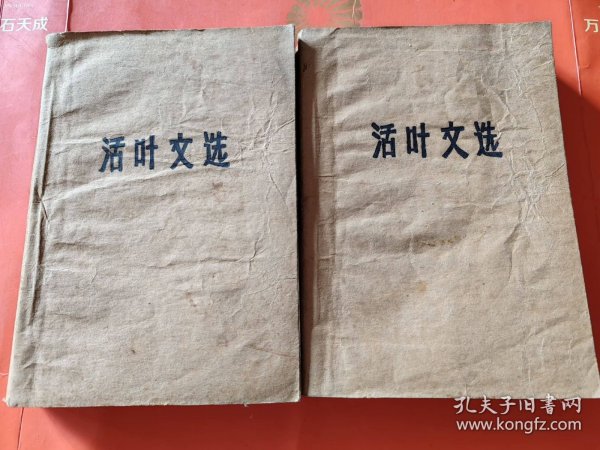 石天成
万
活叶文选
活叶文选
孔夫子旧書网
www.kongfz.com